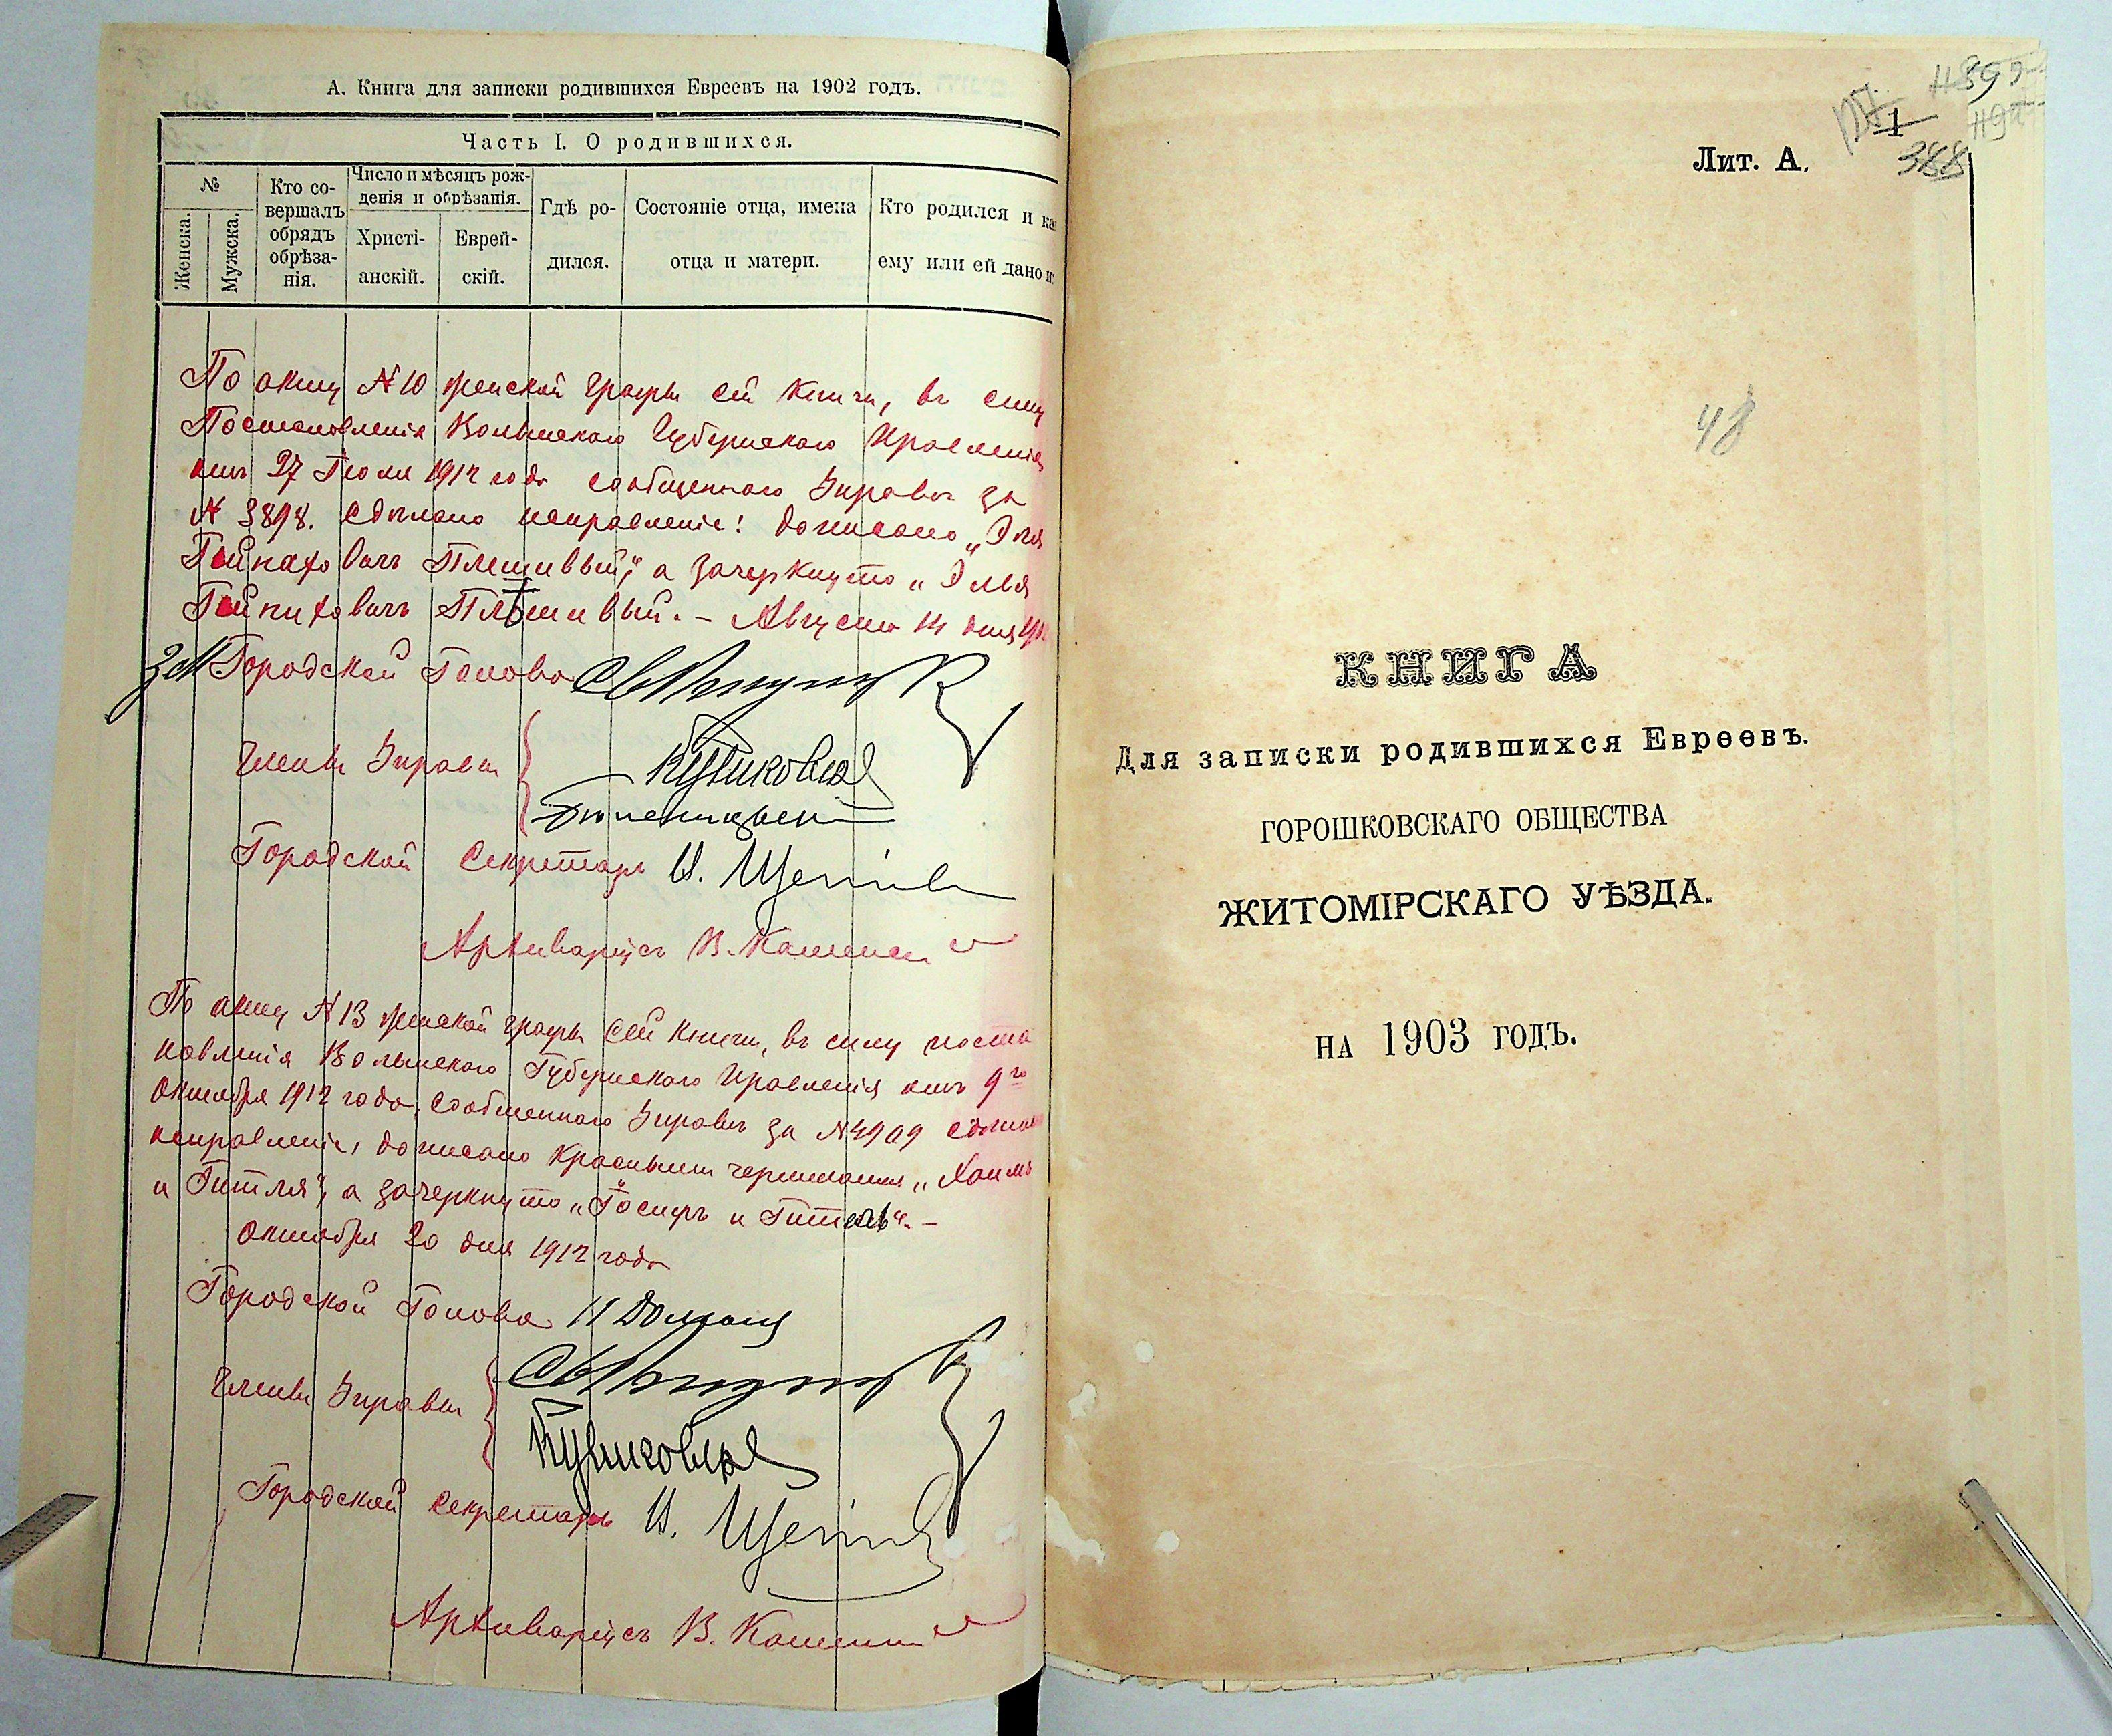 А. Книга для записки родившихся Евреевъ на 1902 годъ.
Часть I. О родившихся.
№
Женска.
Мужска.
Кто со-
вершалъ
обрядъ
обрѣза-
нія.
Число и мѣсяцъ рож-
денія и обрѣзанія.
Христі-
анскій.
Еврей-
скій.
Гдѣ ро-
дился.
Состояніе отца, имена
отца и матери.
Кто родился и ка
ему или ей дано и
По акту № 10 женской графы сей книги, въ силу
Постановленія Волынскаго Губернскаго Правленія
отъ 27 Іюля 1912 года сообщеннаго Управѣ за
№ 3898. сдѣлано исправленіе: дописано „Эля
Пейнаховичъ Плешивый", а зачеркнуто „Элья
Пейниховичъ Плѣшивый. – Августа 14 дня
Городской Голова
Члены Управы
Городской Секретарь И.
Архиваріусъ В.
По акту № 13 женской графы сей книги, въ силу поста
новленія Волынскаго Губернскаго Правленія отъ 9го
Октября 1912 года, сообщеннаго Управѣ за № 4909 сдѣлано
исправленіе, дописано красными чернилами „Хаимъ
и Гитля", а зачеркнуто „Іосифъ и Гитель". –
Октября 20 дня 1912 года
Городской Голова
Члены Управы
Городской Секретарь И.
Архиваріусъ В.
1
388
Лит. А.
48
КНИГА
Для записки родившихся Евреевъ.
ГОРОШКОВСКАГО ОБЩЕСТВА
ЖИТОМІРСКАГО УѢЗДА.
НА 1903 ГОДЪ.